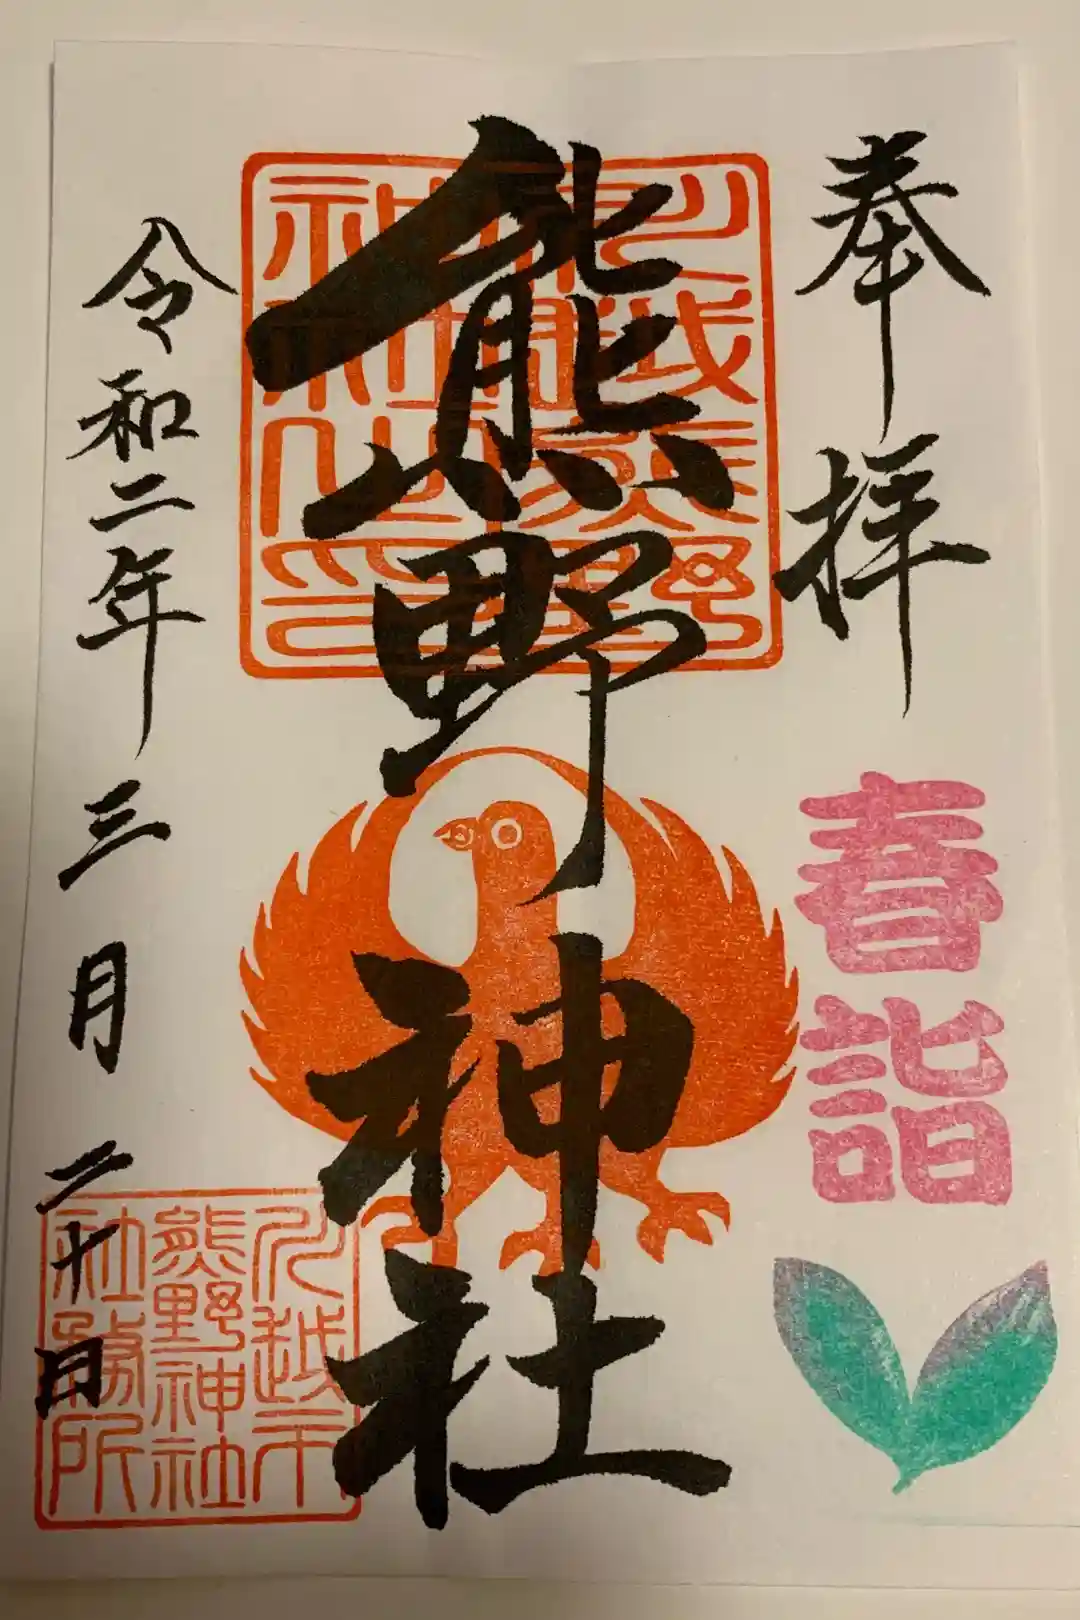 奉拝
春詣
熊野神社
川越熊野
神社之印
令和二年三月二十日
川越市
熊野神社
社務所